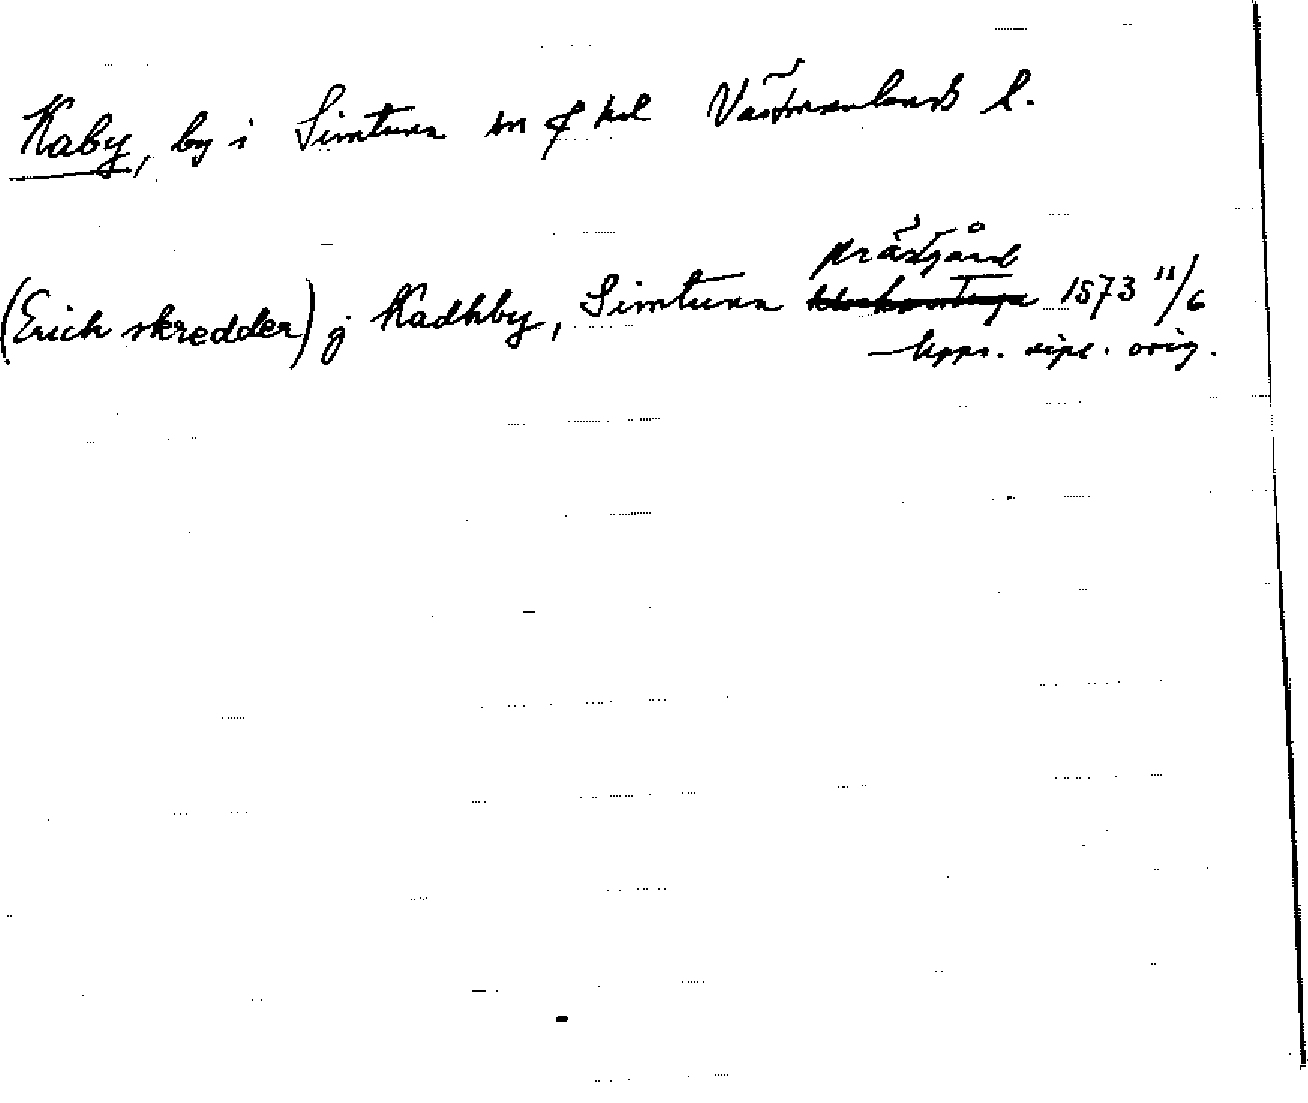 Kaby, by i Simtuna sn o hd Västmanlands l.
prästgård
(Erich skredder) j Kadhby, Simtuna 1573 11/6
Upps. sipe. orig.